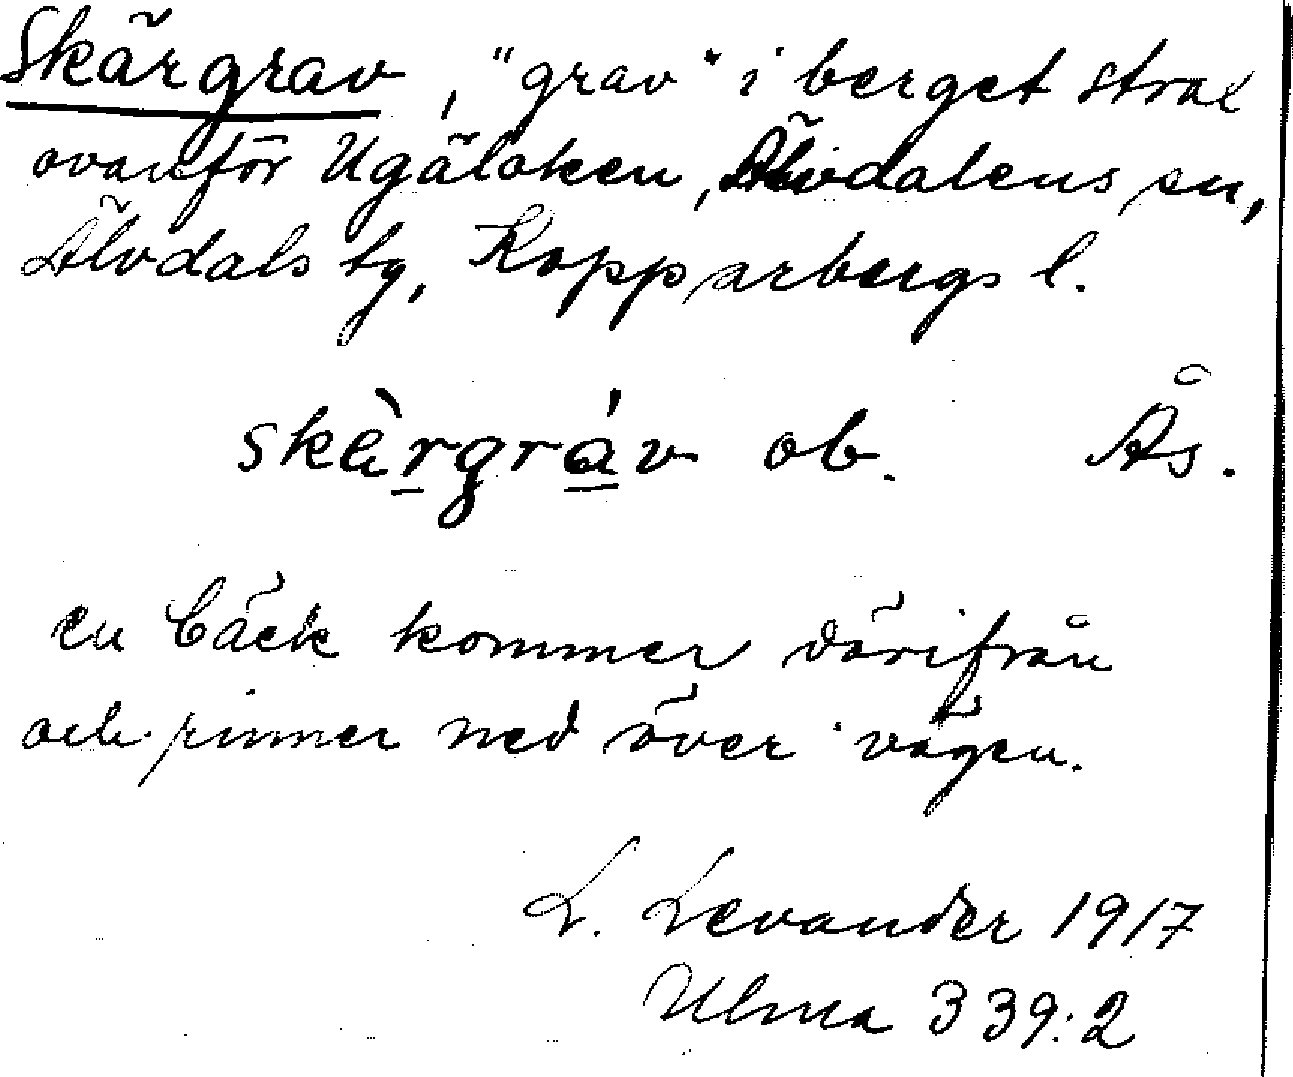 Skärgrav, "grav" i berget strax
ovanför Ugälöken, Älvdalens sn,
Älvdals tg, Kopparbergs l.
skèrgráv ob. Ås.
en bäck kommer därifrån
och rinner ned över vägen.
L. Levander 1917
Ulma 339:2